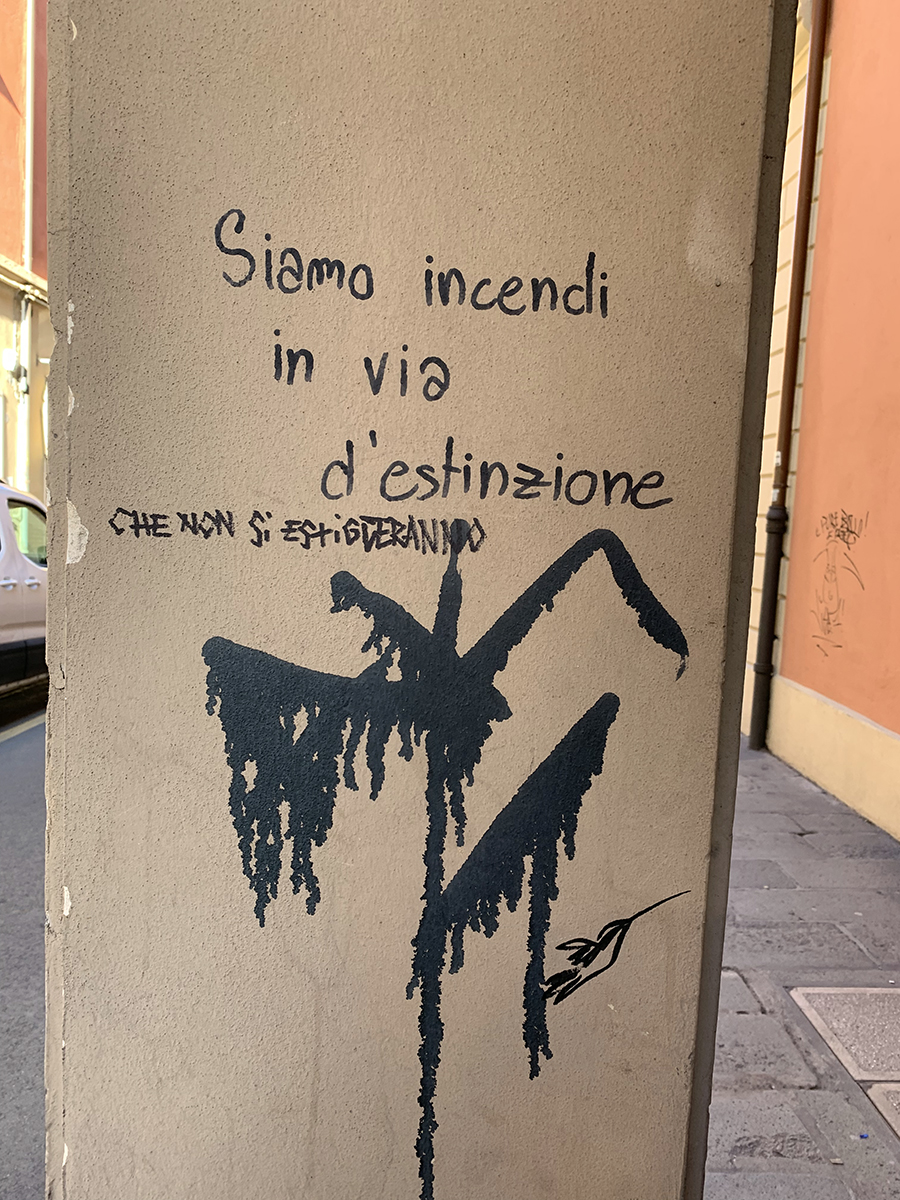 Siamo incendi
in via
d'estinzione
CHE NON Si ESTiGUERANNO